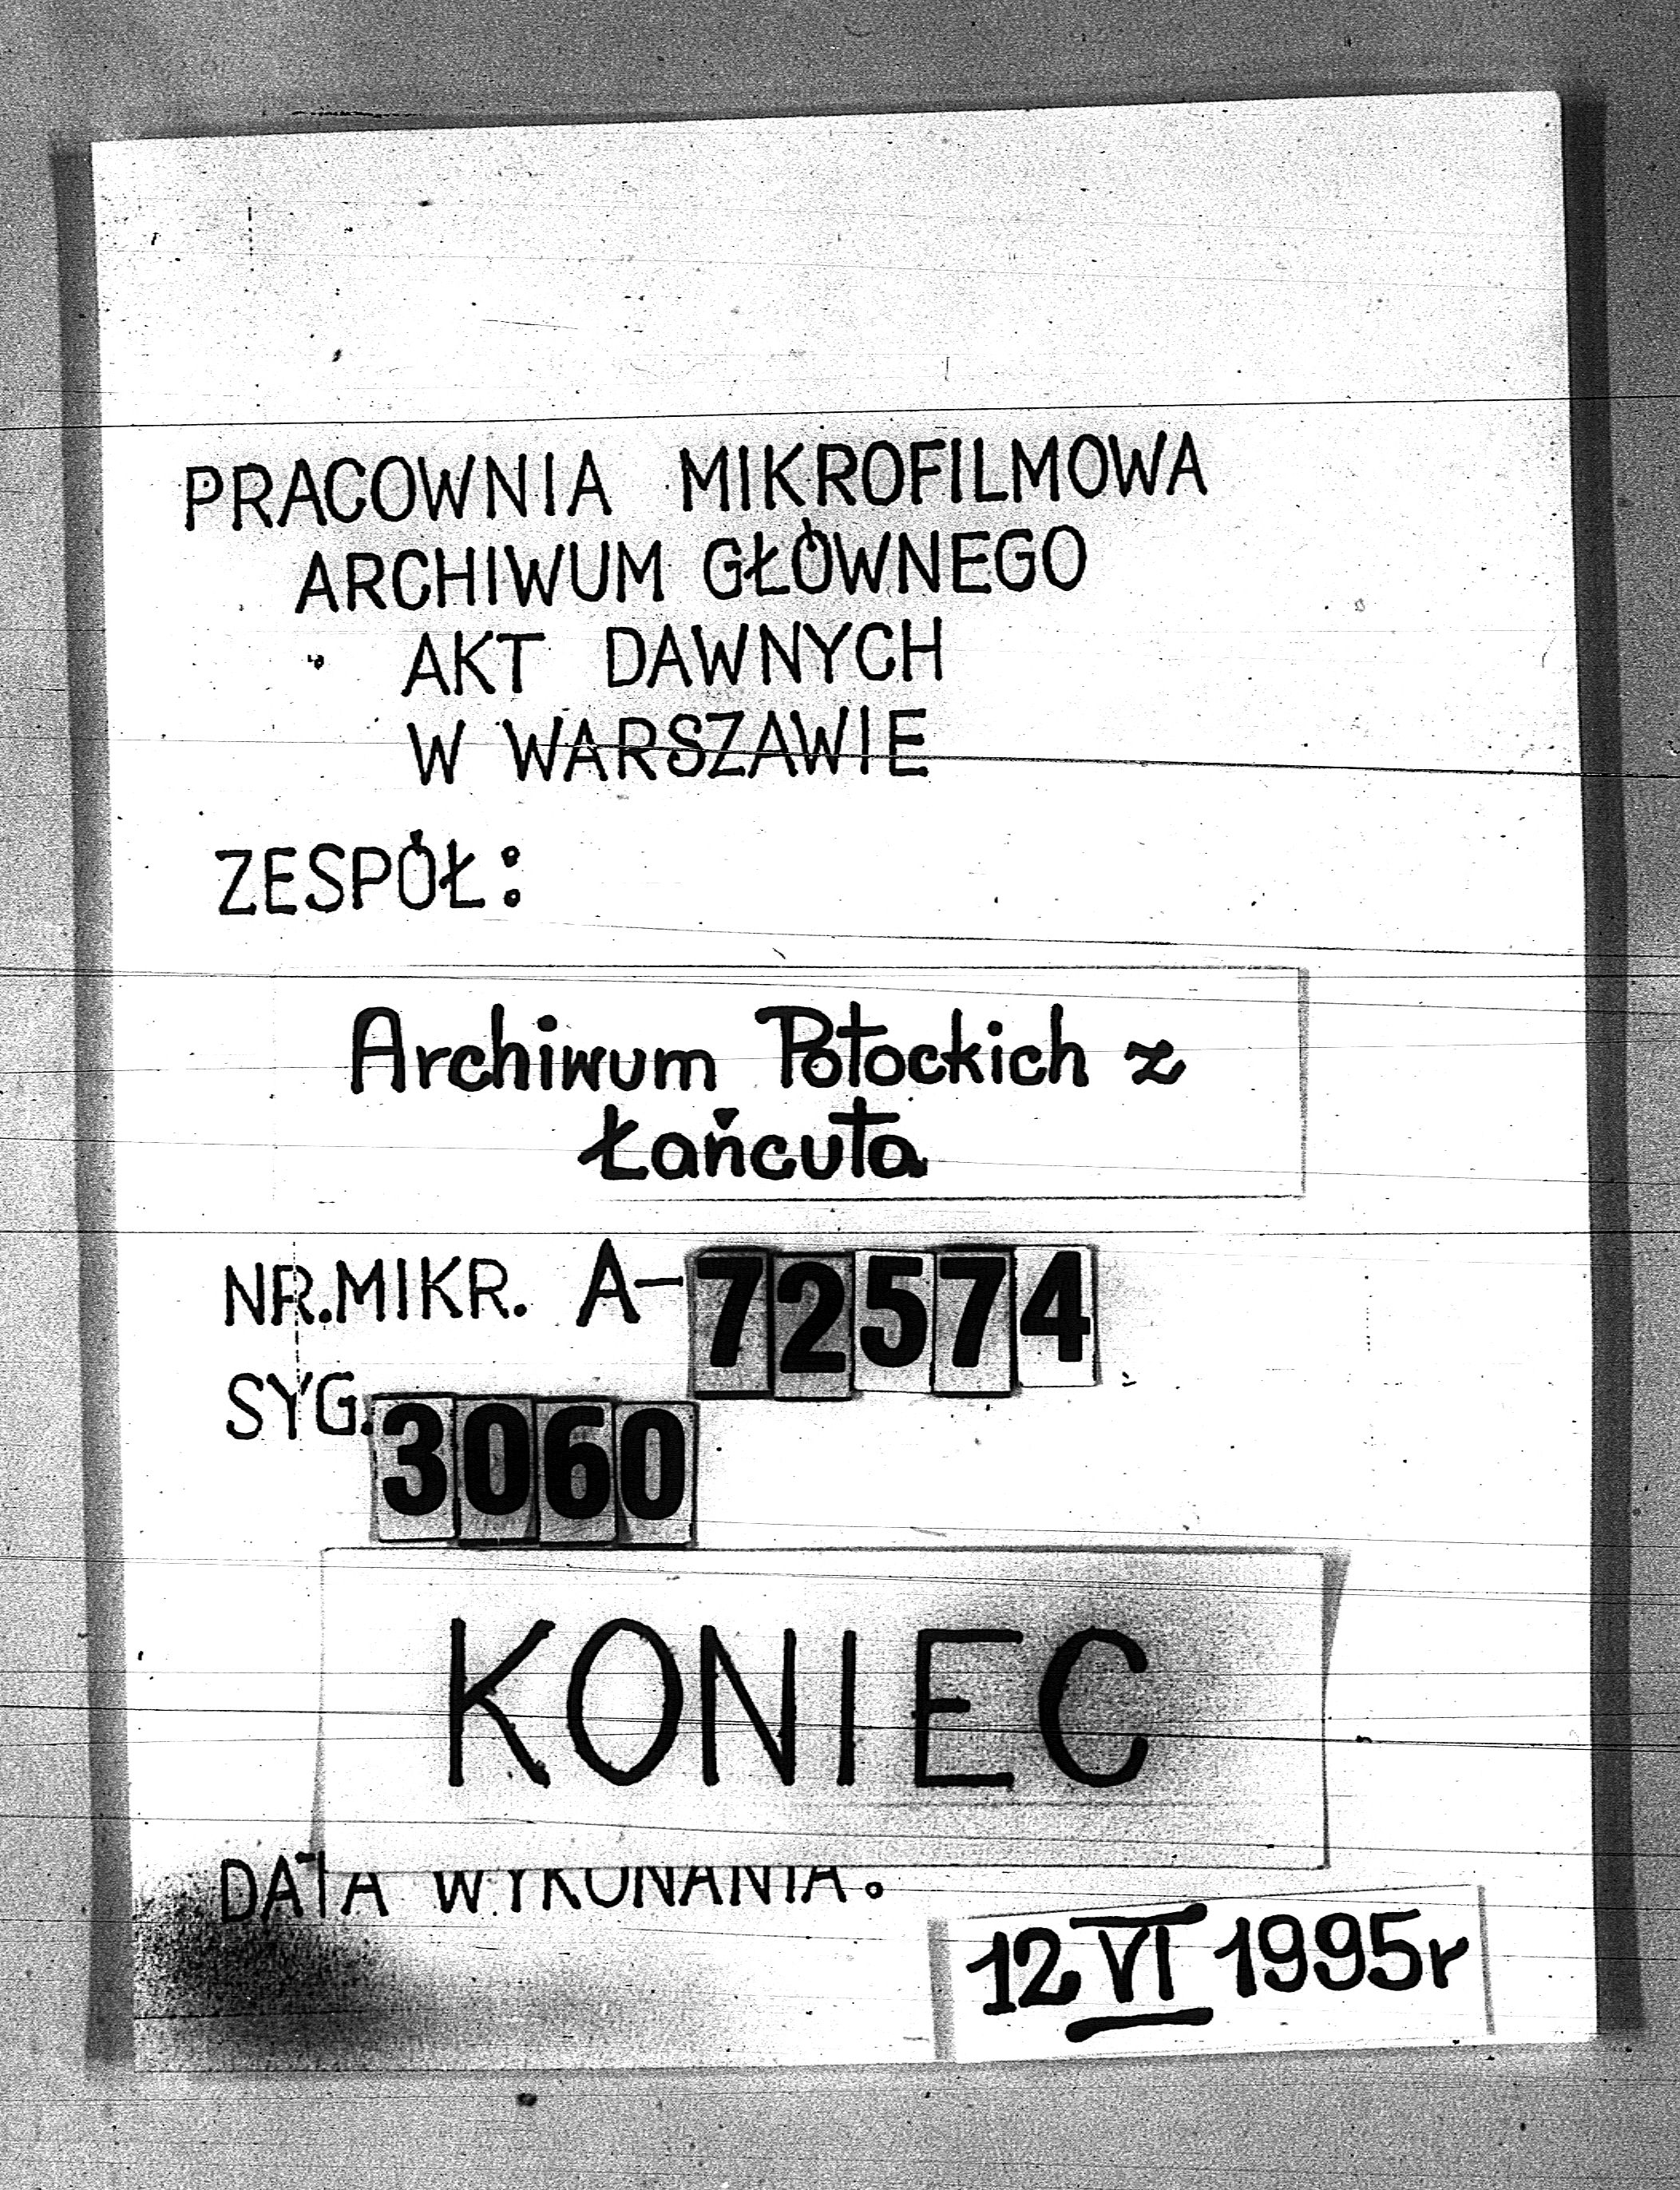 PRACOWNIA MIKROFILMOWA
ARCHIWUM GŁÓWNEGO
AKT DAWNYCH
W WARSZAWIE
ZESPÓŁ:
Archiwum Potockich z
Łańcuta
NR.MIKR. A-72574
SYG. 3060
KONIEC
DATA WYKONANIA:
12 VI 1995r